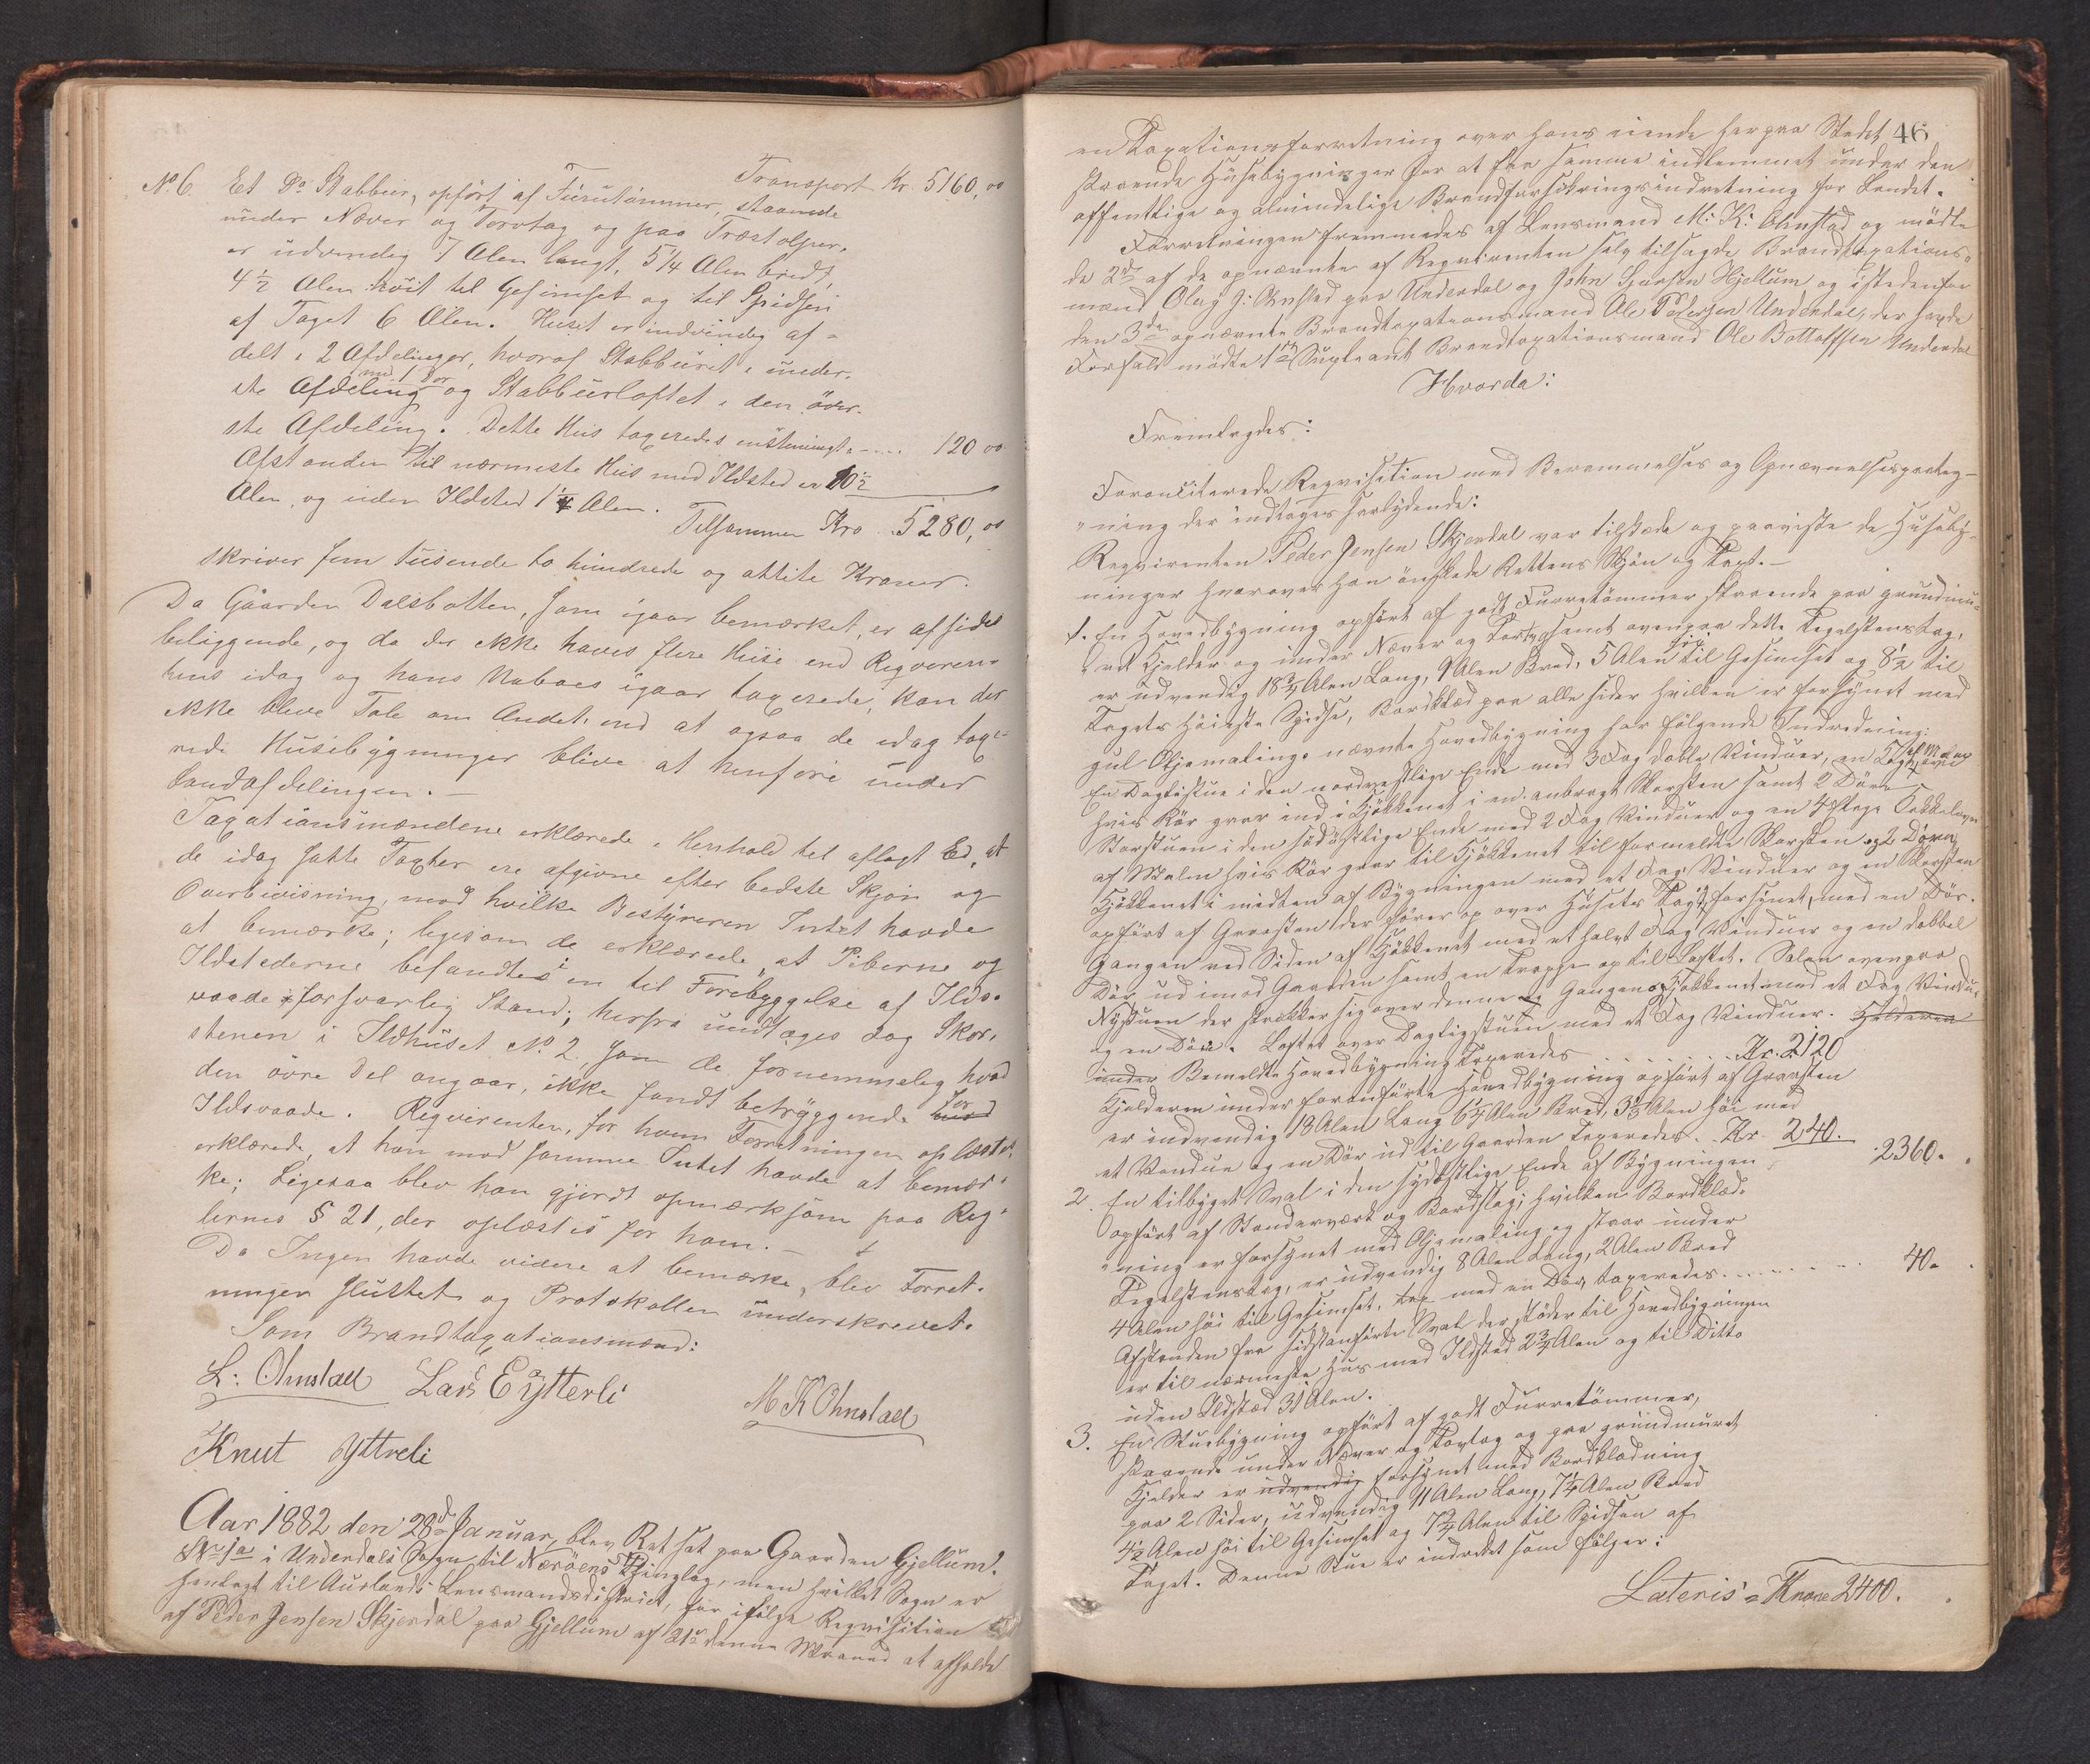 Transport Kr. 5160,00
No 6. Et Do Stabbur, opført af Furutømmer, staaende
under Næver og Torvtag og paa Træstolper.
er udvendig 7 Alen langt, 5 1/4 Alen bredt,
4 1/2 Alen høit til Gesimset og til Spidsen
af Taget 6 Alen. Huset er indvendig af-
delt i 2 Afdelinger, hvoraf Stabburet i under-
ste Afdeling med 1 Dør og Stabbursloftet i den øver-
ste Afdeling. Dette Hus taxeredes enstemmigt . . . . 120 00
Afstanden til nærmeste Hus med Ildsted er 10 1/2
Alen, og uden Ildsted 1 1/4 Alen.
Tilsammen Kro. 5280,00
skriver fem tusende to hundrede og ottiti Kroner.
Da Gaarden Dalsbotten, som igaar bemærket, er afsides
beliggende, og da der ikke haves flere Huse end Reqviren-
tens idag og hans Naboes igaar taxerede, kan der
ikke blive Tale om Andet, end at ogsaa de idag taxe-
rede Husebygninger blive at henføre under
Landafdelingen.
Taxationsmændene erklærede i Henhold til aflagt Ed, at
de idag satte Taxter ere afgivne efter bedste Skjøn og
Overbevisning, mod hvilke Bestyreren Intet havde
at bemærke; ligesom de erklærede, at Piberne og
Ildstederne befandtes i en til Forebyggelse af Ilds-
vaade forsvarlig Stand; herfra undtages dog Skor-
stenen i Ildhuset No 2, som de fornemmelig hvad
den øvre Del angaar, ikke fandt betryggende for
Ildsvaade. Reqvirenten, for hvem Forretningen oplæstes,
erklærede, at han mod samme Intet havde at bemær-
ke; Ligesaa blev han gjort opmærksom paa Reg-
lernes § 21, der oplæstes for ham.
Da Ingen havde videre at bemærke, blev Forret-
ningen sluttet og Protokollen underskrevet.
Som Brandtaxationsmænd:
L. Ohnstad Lars E Ytterli
M K Ohnstad
Knut Yttreli
Aar 1882 den 28de Januar, blev Ret sat paa Gaarden Gjellum,
No 1a i Underdals Sogn til Nærøens Thinglag, men hvilket Sogn er
henlagt til Aurlands Lensmandsdistrict, for ifølge Reqvisition
af Peder Jensen Skjerdal paa Gjellum af 21de denne Maaned at afholde
46
en Taxationsforretning over hans eiende herpaa Stedet
staaende Husebygninger for at faa samme indlemmet under den
offentlige og almindelige Brandforsikringsindretning for Landet.
Forretningen fremmedes af Lensmand M. K. Ohnstad og mødte
de 2de af de opnævnte af Reqvirenten selv tilsagde Brandtaxations-
mænd Olay J. Ohnstad paa Underdal og John Sjursen Hjellum og istedenfor
den 3die opnævnte Brandtaxationsmand Ole Pedersen Underdal, der havde
Forfald mødte 1ste Supleant Brandtaxationsmand Ole Bottolfsen Underdal
Hvorda:
Fremlagdes:
Foranciterede Reqvisition med Berammelses og Opnævnelsespaateg-
ning der indtages saalydende:
Reqvirenten Peder Jensen Skjerdal var tilstæde og paaviste de Huseby-
ninger hvorover han ønskede Rettens Skjøn og Taxt. —
1. En Hovedbygning opført af godt Furretømmer staaende paa grundmu-
ret Kjelder og under Næver og Torvtag samt ovenpaa dette Tegelstenstag,
er udvendig 18 3/4 Alen Lang, 9 Alen Bred, 5 Alen høi til Gesimset og 8 1/2 til
Tagets høieste Spidse, Bordklæd paa alle sider hvilken er forsynet med
gul Oljemaling. nævnte Hovedbygning har følgende Indredning:
En Dagligstue i den nordvestlige Ende med 3 Fag doble Vinduer, en Etages Ovn af Malm
hvis Rør gaar ind i Kjøkkenet i en anbragt Skorsten samt 2 Døre
Storstuen i den sødøstlige Ende med 2 Fag Vinduer og en 4 Etages Kakkelovn
af Malm hvis Rør gaar til Kjøkkenet til formeldte Skorsten og 2 Døre
Kjøkkenet i midten af Bygningen med et Fag Vinduer og en Skorsten
opført af Graasten der fører op over Husets Tag, forsynet med en Dør.
Gangen ved Siden af Kjøkkenet med et halvt Fag Vinduer og en dobbel
Dør ud imod Gaarden samt en Trappe op til Loftet. Salen ovenpaa
Nystuen der strækker sig over denne og Gangen og Kjøkkenet med et Fag Vindue
og en Dør. Loftet over Dagligstuen med et Fag Vinduer. Kjelderen
under Bemeldte Hovedbygning Taxeredes . . . . . . . . Kr. 2120
Kjelderen under foranførte Hovedbygning opført af Graasten
er indvendig 18 Alen Lang 6 1/4 Alen Bred, 3 1/2 Alen høi med
et Vindue og en Dør ud til Gaarden Taxeredes . . Kr. 240. 2360.
2. En tilbygget Sval i den sydøstlige Ende af Bygningen
opført af Standerværk og Bordslag, hvilken Bordklæd-
ning er forsynet med Oljemaling og staar under
Tegelstenstag, er udvendig 8 Alen Lang, 2 Alen Bred
4 Alen høi til Gesimset, tag med en Dør, taxeredes . . . . . . . . . 40.
Afstanden fra sidstanførte Sval der støder til Hovedbygningen
er til nærmeste Hus med Ildsted 2 3/4 Alen og til Ditto
uden Ildsted 31 Alen.
3. En Stuebygning opført af godt Furretømmer,
staaende under Næver og Torvtag og paa grundmuret
Kjelder er udvendig forsynet med Bordklædning
paa 2 Sider, udvendig 11 Alen Lang, 7 1/4 Alen Bred
4 1/2 Alen høi til Gesimset og 7 3/4 Alen til Spidsen af
Taget. Denne Stue er indredet som følger:
Lateris = Krone 2400.